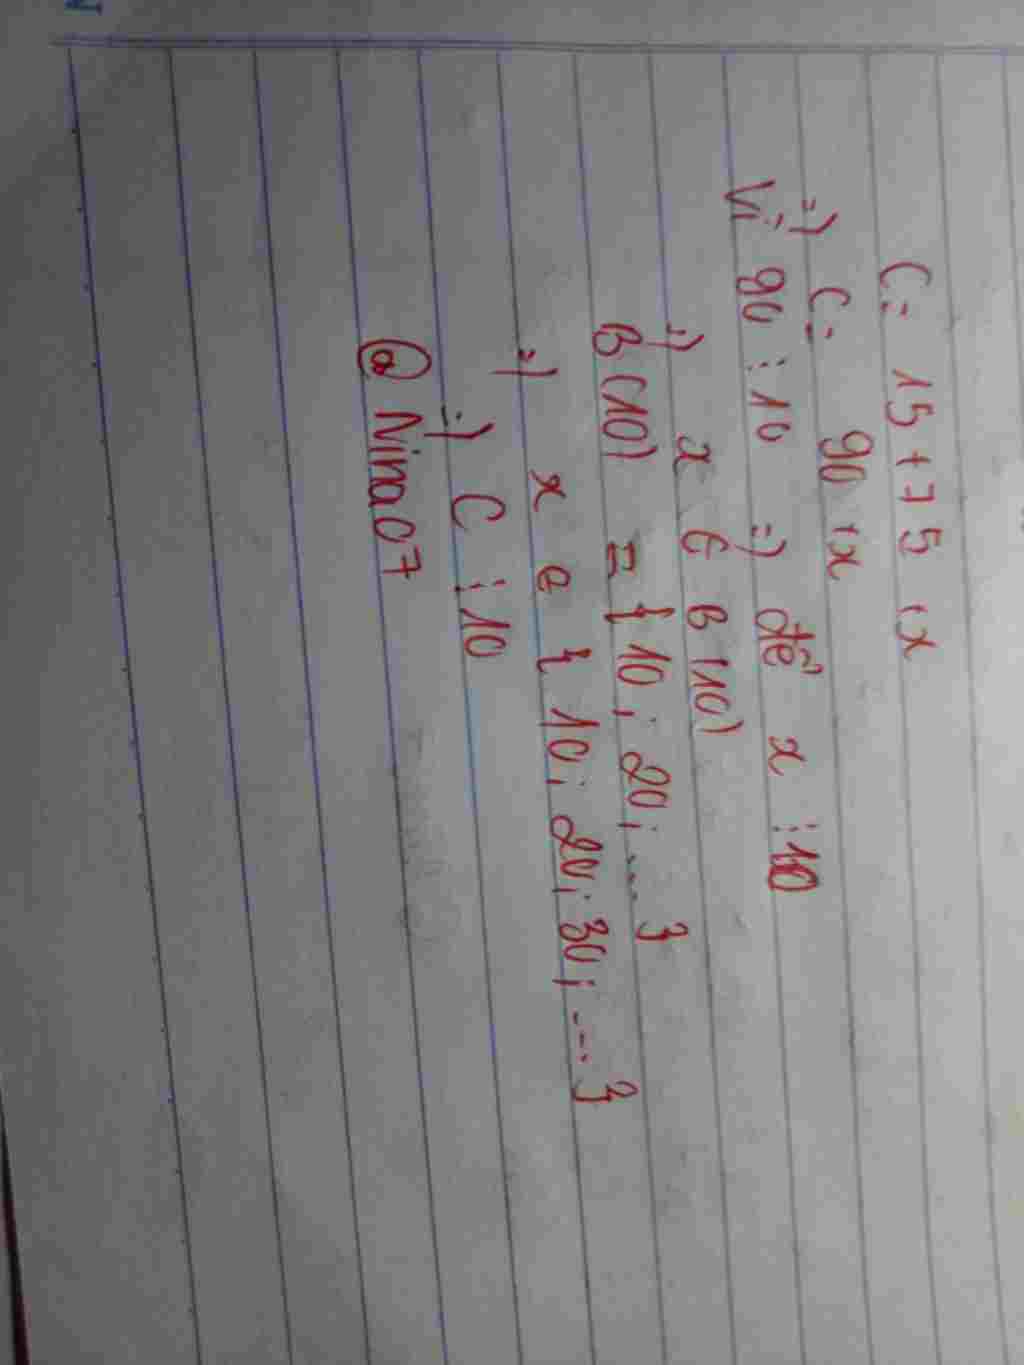 C= 15+75+x
=) C= 90+x
Vì 90⋮10 =) để x⋮10
=) x ∈ B(10)
B(10) = {10; 20; ... }
=) x ∈ {10; 20; 30; ... }
=) C⋮10
@Nina07